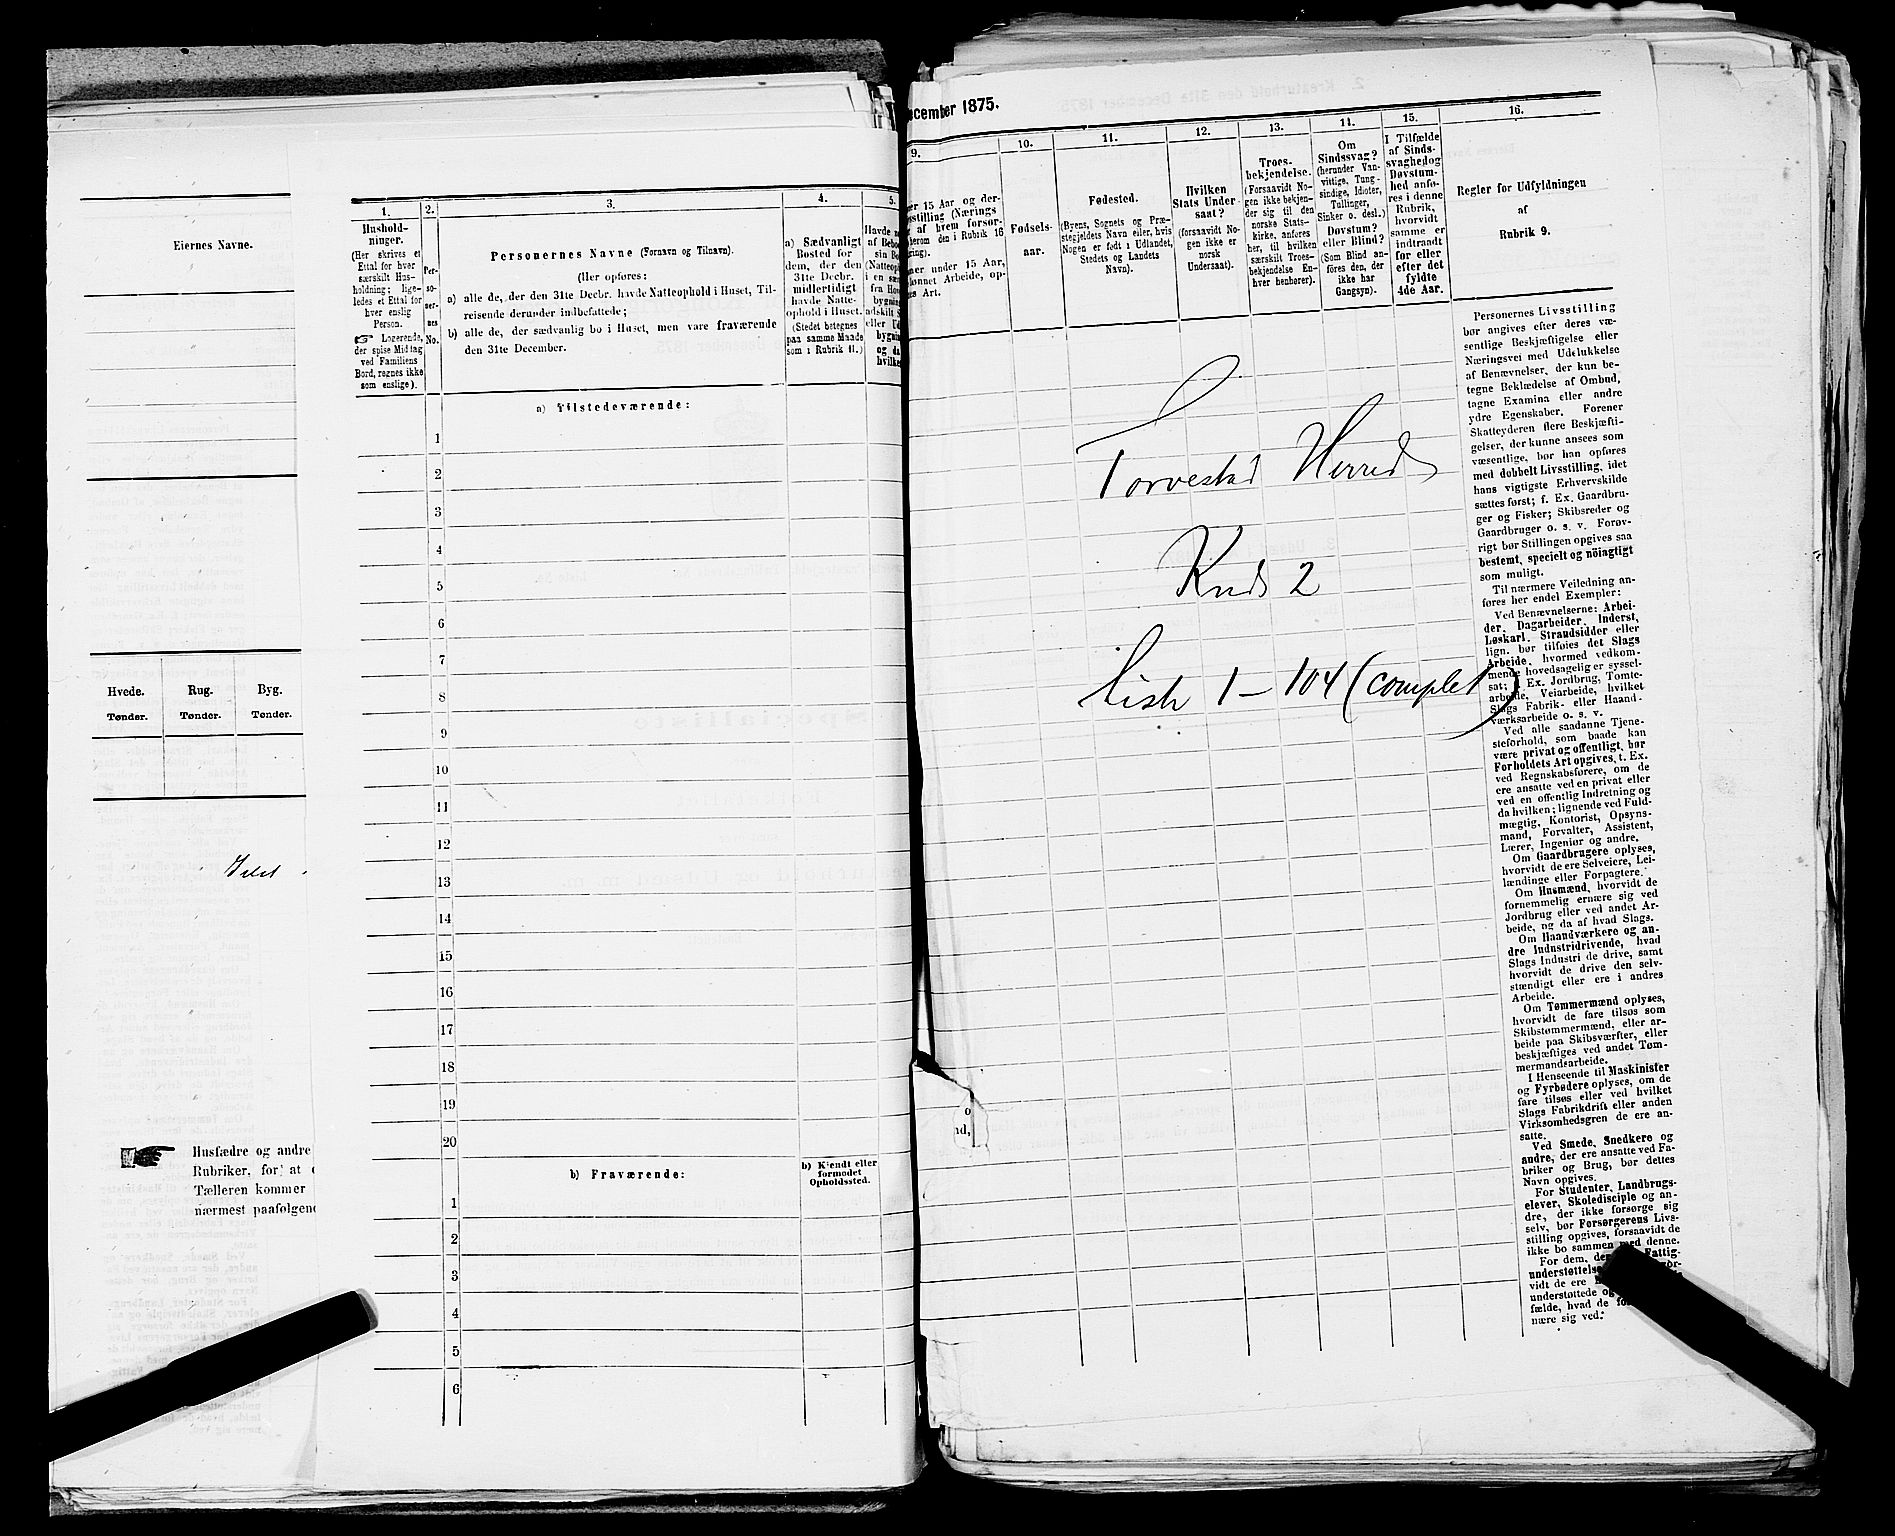 Eiernes Navne.
Hvede. Rug. Byg.
Tønder. Tønder. Tønder.
Husfædre og andre
Rubriker, for at
Tælleren kommer
nærmest paafølgend
1.
Hushold-
ninger.
(Her skrives et
Ettal for hver
særskilt Hus-
holdning; lige-
ledes et Ettal for
hver enslig
Person.
☞ Logerende,
der spise Middag
ved Familiens
Bord, regnes ikke
som enslige).
2.
Per-
so-
ner-
nes
No.
3.
Personernes Navne (Fornavn og Tilnavn).
(Her opføres:
a) alle de, der den 31te Decbr. havde Natteophold i Huset, Til-
reisende derunder indbefattede;
b) alle de, der sædvanlig bo i Huset, men vare fraværende
den 31te December.
4.
a) Sædvanligt
Bosted for
dem, der den
31te Decbr.
midlertidigt
havde Natte-
ophold i Huset.
(Stedet betegnes
paa samme Maade
som i Rubrik 11.)
5.
Havde n
af Bebo
sin Bo
(Natteop
i en sæ
fra Hov
bygnin
adskilt S
eller Ud
bygnin
og da
hvilke
a) Tilstedeværende:
1
2
3
4
5
6
7
8
9
10
11
12
13
14
15
16
17
18
19
20
b) Fraværende:
b) Kjendt eller
formodet
Opholdssted.
1
2
3
4
5
6
ecember 1875.
9.
er 15 Aar og der-
sstilling (Nærings
af hvem forsør-
herom den i Rubrik 16
ring).
ner under 15 Aar,
lønnet Arbeide, op-
es Art.
10.
Fødsels-
aar.
11.
Fødested.
(Byens, Sognets og Præ-
stegjeldets Navn eller, hvis
Nogen er født i Udlandet,
Stedets og Landets
Navn).
12.
Hvilken
Stats Under
saat?
(forsaavidt No-
gen ikke er
norsk
Undersaat).
13.
Troes-
bekjendelse.
(Forsaavidt No-
gen ikke bekjen-
der sig til den
norske Stats-
kirke, anføres
her, til hvilken
særskilt Troes-
bekjendelse En-
hver henhører).
14.
Om
Sindssvag?
(herunder Van-
vittige, Tung-
sindige, Idioter,
Tullinger,
Sinker o. desl.)
Døvstum?
eller Blind?
(Som Blind an-
føres den, der
ikke har
Gangsyn).
15.
I Tilfælde
af Sinds-
svaghed og
Døvstum-
hed anfø-
res i denne
Rubrik,
hvorvidt
samme er
indtraadt
før eller
efter det
fyldte
4de Aar.
16.
Regler for Udfyldningen
af
Rubrik 9.
Torvestad Herred
Kreds 2
Liste 1-104 (complet)
Personernes Livsstilling
bør angives efter deres væ-
sentlige Beskjæftigelse eller
Næringsvei med Udelukkelse
af Benævnelser, der kun be-
tegne Beklædelse af Ombud,
tagne Examina eller andre
ydre Egenskaber. Forener
Skatteyderen flere Beskjæfti-
gelser, der kunne ansees som
væsentlige, bør han opføres
med dobbelt Livsstilling, idet
hans vigtigste Erhvervskilde
sættes først; f. Ex. Gaardbru-
ger og Fisker; Skibsreder og
Gaardbruger o. s. v. Forøv-
rigt bør Stillingen opgives saa
bestemt, specielt og nöiagtigt
som muligt.
Til nærmere Veiledning an-
føres her endel Exempler:
Ved Benævnelserne: Arbei-
der, Dagarbeider, Inderst,
Løskarl, Strandsidder eller
lign. bør tilføies det Slags
Arbeide, hvormed vedkom-
mende hovedsagelig er syssel-
sat; f. Ex. Jordbrug, Tomte-
arbeide, Veiarbeide, hvilket
Slags Fabrik- eller Haand-
værksarbeide o. s. v.
Ved alle saadanne Tjene-
steforhold, som baade kan
være privat og offentligt, bør
Forholdets Art opgives, t. Ex.
ved Regnskabsførere, om de
ere ansatte ved en privat eller
ved en offentlig Indretning og
da hvilken; lignende ved Fuld-
mægtig, Kontorist, Opsyns-
mand, Forvalter, Assistent,
Lærer, Ingeniør og andre.
Om Gaardbrugere oplyses,
hvorvidt de ere Selveiere, Lei-
lændinge eller Forpagtere.
Om Husmænd, hvorvidt de
fornemmelig ernære sig ved
Jordbrug eller ved andet Ar-
beide, og da af hvad Slags.
Om Haandværkere og an-
dre Industridrivende, hvad
Slags Industri de drive, samt
hvorvidt de drive den selv-
stændigt eller ere i andres
Arbeide.
Om Tømmermænd oplyses,
hvorvidt de fare tilsøs som
Skibstømmermænd, eller ar-
beide paa Skibsværfter, eller
beskjæftiges ved andet Tøm-
mermandsarbeide.
I Henseende til Maskinister
og Fyrbødere oplyses, om de
fare tilsøs eller ved hvilket
Slags Fabrikdrift eller anden
Virksomhedsgren de ere an-
satte.
Ved Smede, Snedkere og
andre, der ere ansatte ved Fa-
briker og Brug, bør dettes
Navn opgives.
For Studenter, Landbrugs-
elever, Skoledisciple og an-
dre, der ikke forsørge sig
selv, bør Forsørgerens Livs-
stilling opgives, forsaavidt de
ikke bo sammen med denne.
For dem, de Fattig-
understøttelse
vidt de ere
understøttede og
fælde, hvad de
nære sig ved.